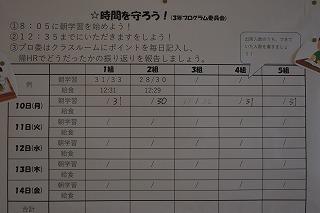 ☆時間を守ろう！(3年プログラム委員会)
①８：０５に朝学習を始めよう！
②１２：３５までにいただきますをしよう！
③プロ委はクラスルームにポイントを毎日記入し、
帰HRでどうだったかの振り返りを報告しましょう。
1組 2組 3組 4組 5組
例 朝学習 31/33 28/30 / / /
給食 12:31 12:29
10日(月) 朝学習 /31 /30 /31 /31
給食
11日(火) 朝学習 / / / / /
給食
12日(水) 朝学習 / / / / /
給食
13日(木) 朝学習 / / / / /
給食
14日(金) 朝学習 / / / / /
給食
合計